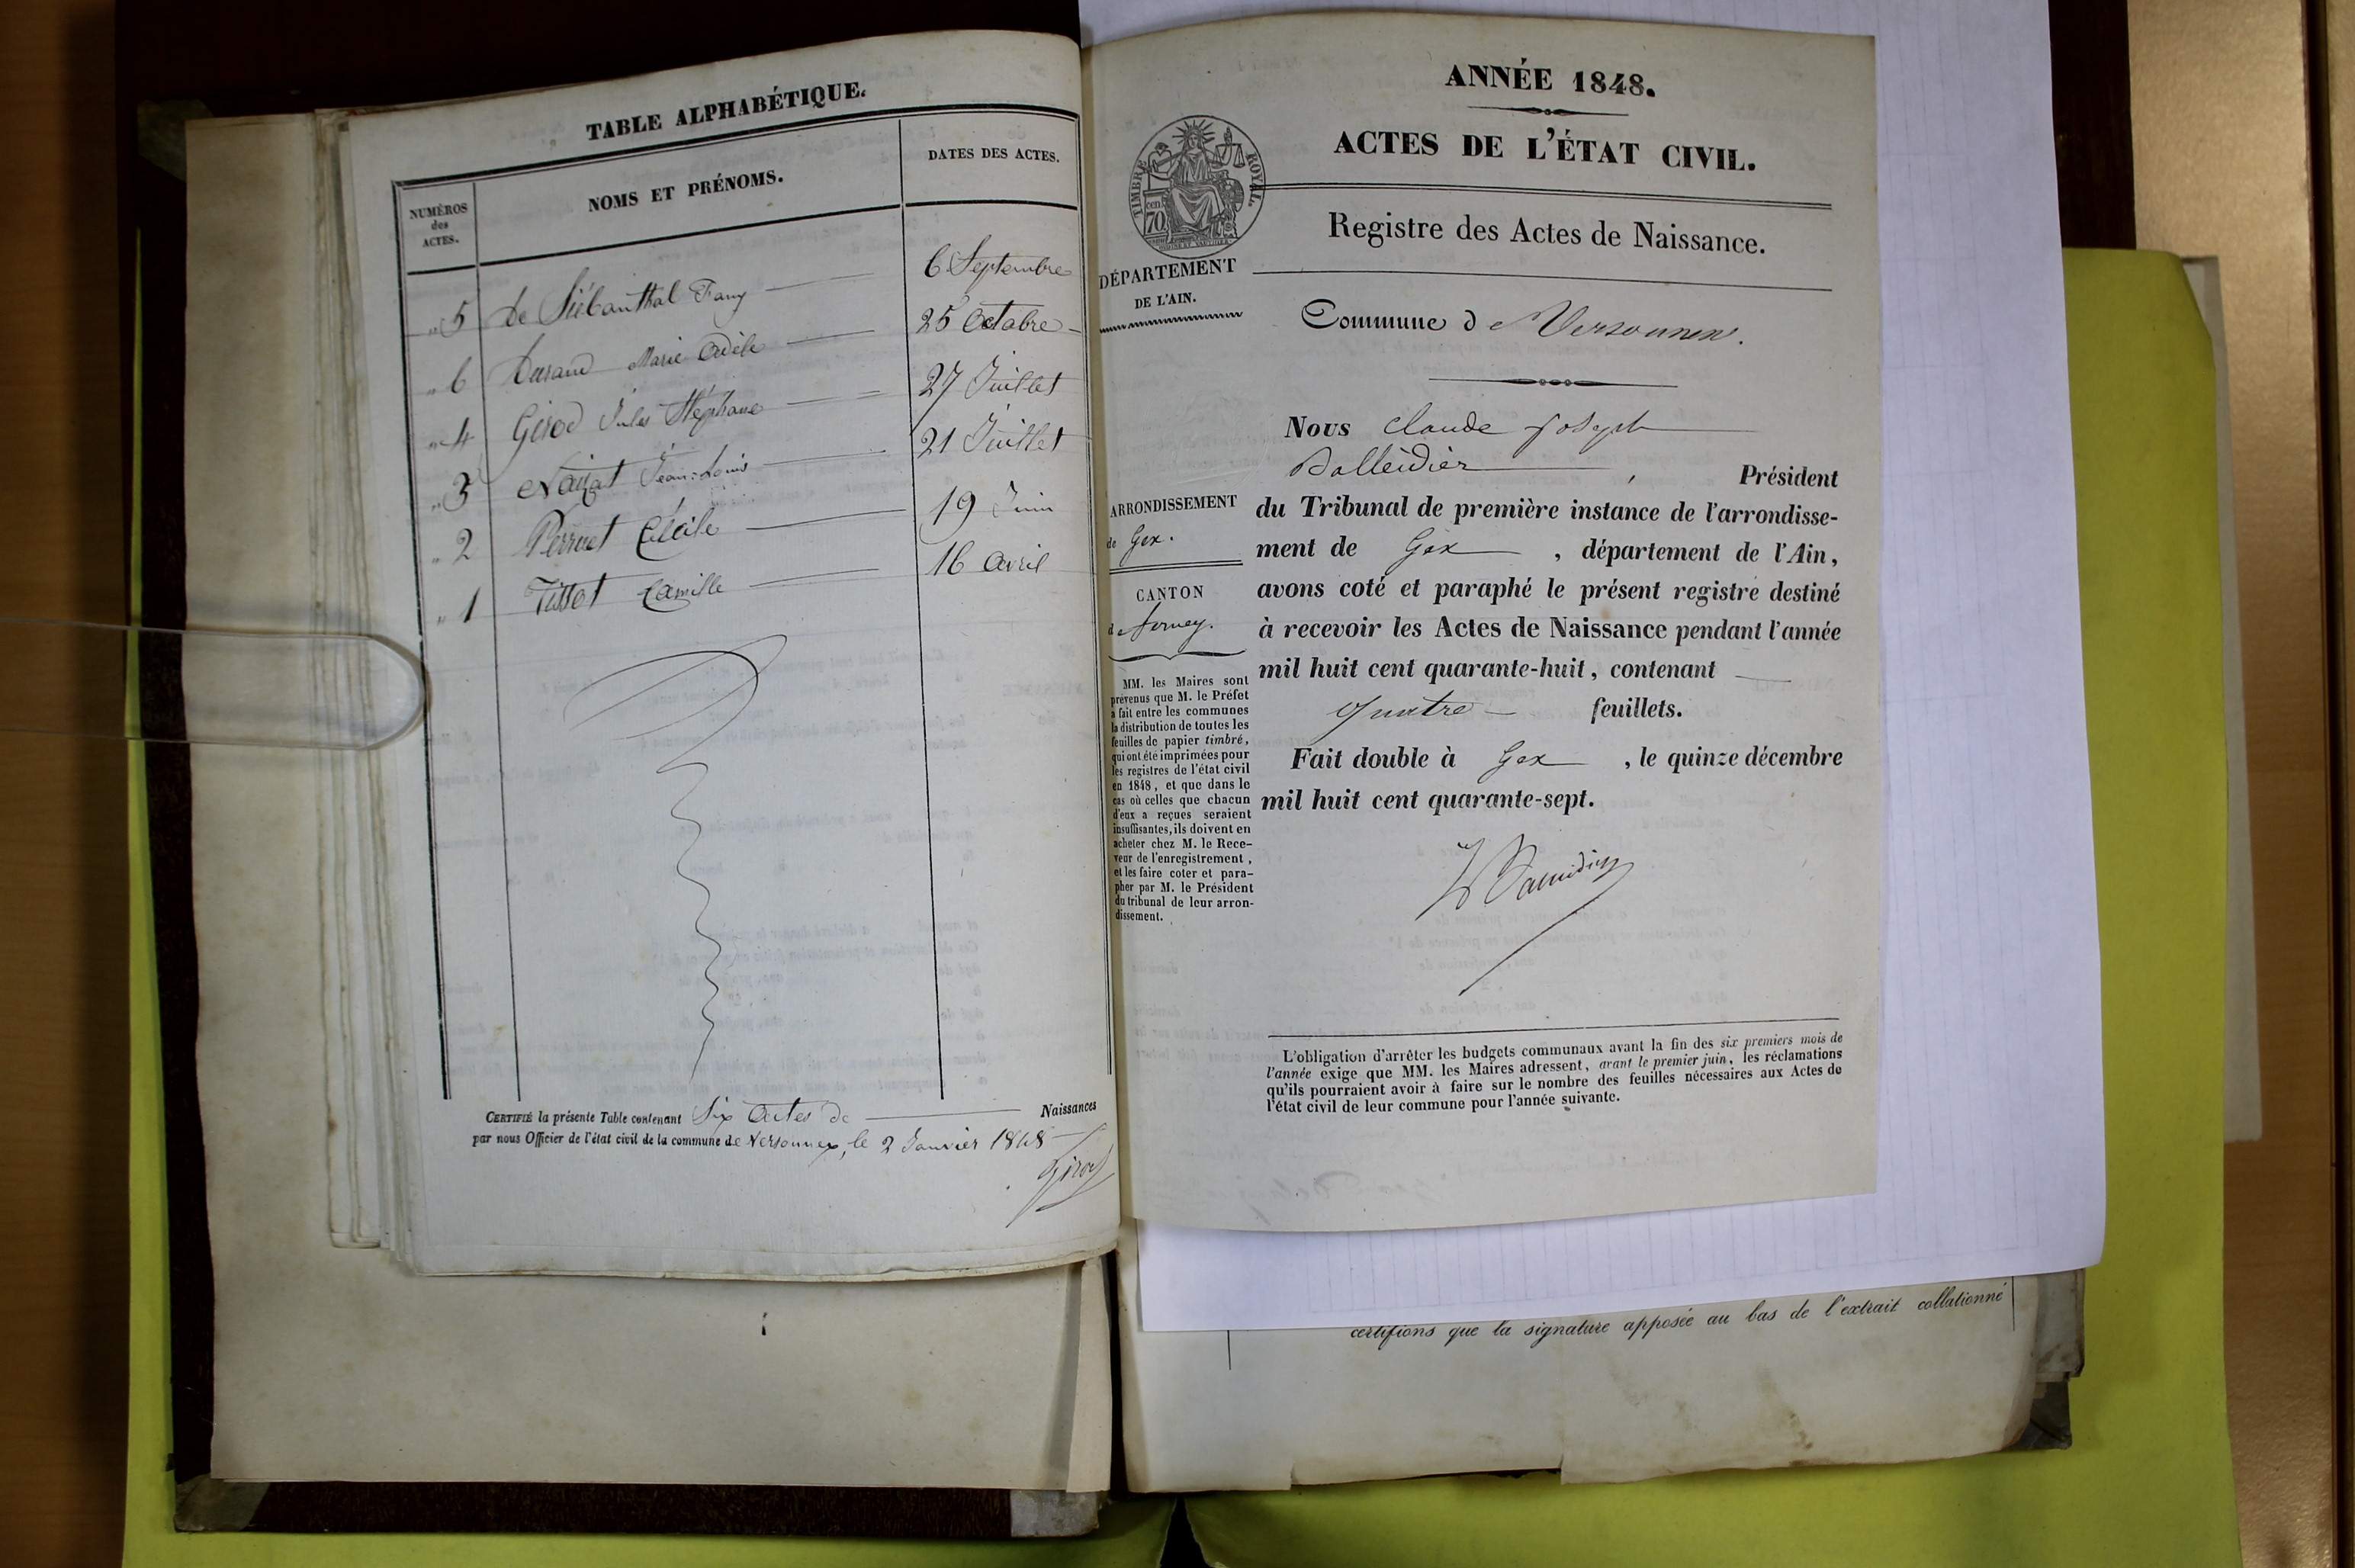 TABLE ALPHABÉTIQUE.
NUMÉROS
des
ACTES.
NOMS ET PRÉNOMS.
DATES DES ACTES.
" 5 de Siébanthal Fany 6 Septembre
" 6 Durand Marie Adèle 25 Octobre
" 4 Girod Jules Stéphane 27 Juillet
" 3 Jean-Louis 21 Juillet
" 2 Perruet Cécile 19 Juin
" 1 Tissot Camille 16 avril
CERTIFIÉ la présente Table contenant Six Actes de Naissances
par nous Officier de l'état civil de la commune de Versonnex, le 2 Janvier 1848
Girod
ANNÉE 1848.
ACTES DE L'ÉTAT CIVIL.
TIMBRE ROYAL.
cen
70
Registre des Actes de Naissance.
DÉPARTEMENT
DE L'AIN.
Commune de Versonnex.
Nous Claude Joseph
Balleidier, Président
du Tribunal de première instance de l'arrondisse-
ment de Gex, département de l'Ain,
avons coté et paraphé le présent registre destiné
à recevoir les Actes de Naissance pendant l'année
mil huit cent quarante-huit, contenant
quatre feuillets.
Fait double à Gex, le quinze décembre
mil huit cent quarante-sept.
ARRONDISSEMENT
de Gex.
CANTON
de ferney.
MM. les Maires sont
prévenus que M. le Préfet
a fait entre les communes
la distribution de toutes les
feuilles de papier timbré,
qui ont été imprimées pour
les registres de l'état civil
en 1848, et que dans le
cas où celles que chacun
d'eux a reçues seraient
insuffisantes, ils doivent en
acheter chez M. le Rece-
veur de l'enregistrement,
et les faire coter et para-
pher par M. le Président
du tribunal de leur arron-
dissement.
L'obligation d'arrêter les budgets communaux avant la fin des six premiers mois de
l'année exige que MM. les Maires adressent, avant le premier juin, les réclamations
qu'ils pourraient avoir à faire sur le nombre des feuilles nécessaires aux Actes de
l'état civil de leur commune pour l'année suivante.
certifions que la signature apposée au bas de l'extrait collationné